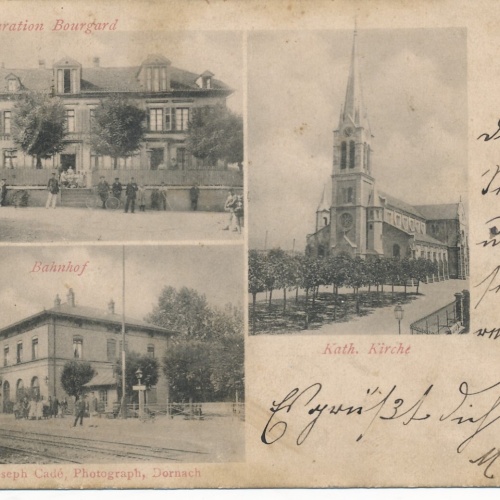 ration Bourgard
Bahnhof
Kath. Kirche
Joseph Cadé, Photograph, Dornach
Es grüßt dich
M